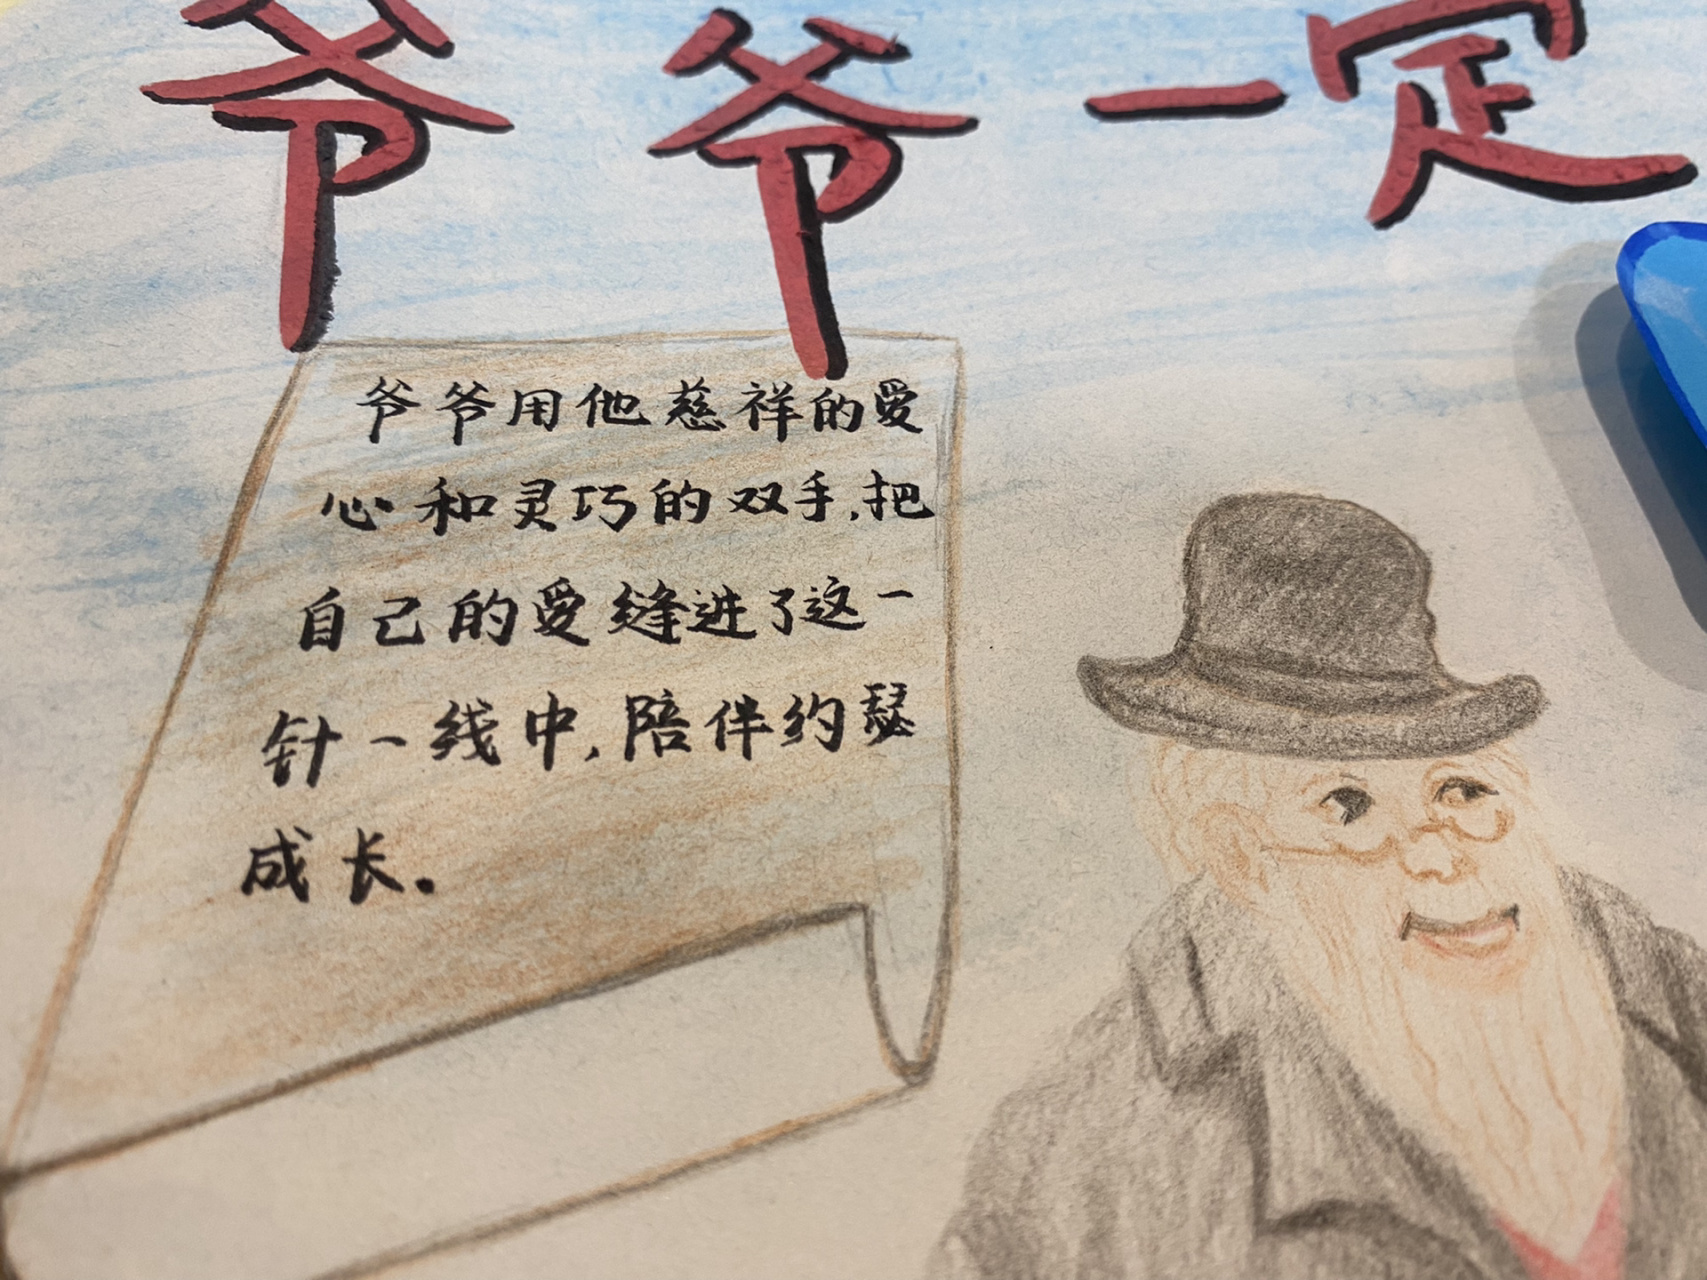 爷爷一定
爷爷用他慈祥的爱
心和灵巧的双手,把
自己的爱缝进了这一
针一线中,陪伴约瑟
成长.